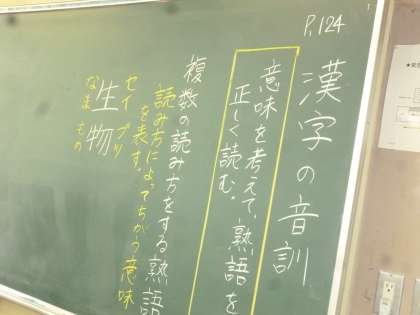 P.124
漢字の音訓
意味を考えて、熟語を
正しく読む。
複数の読み方をする熟語
読み方によってちがう意味
を表す。
セイ ブツ
生物
なま もの